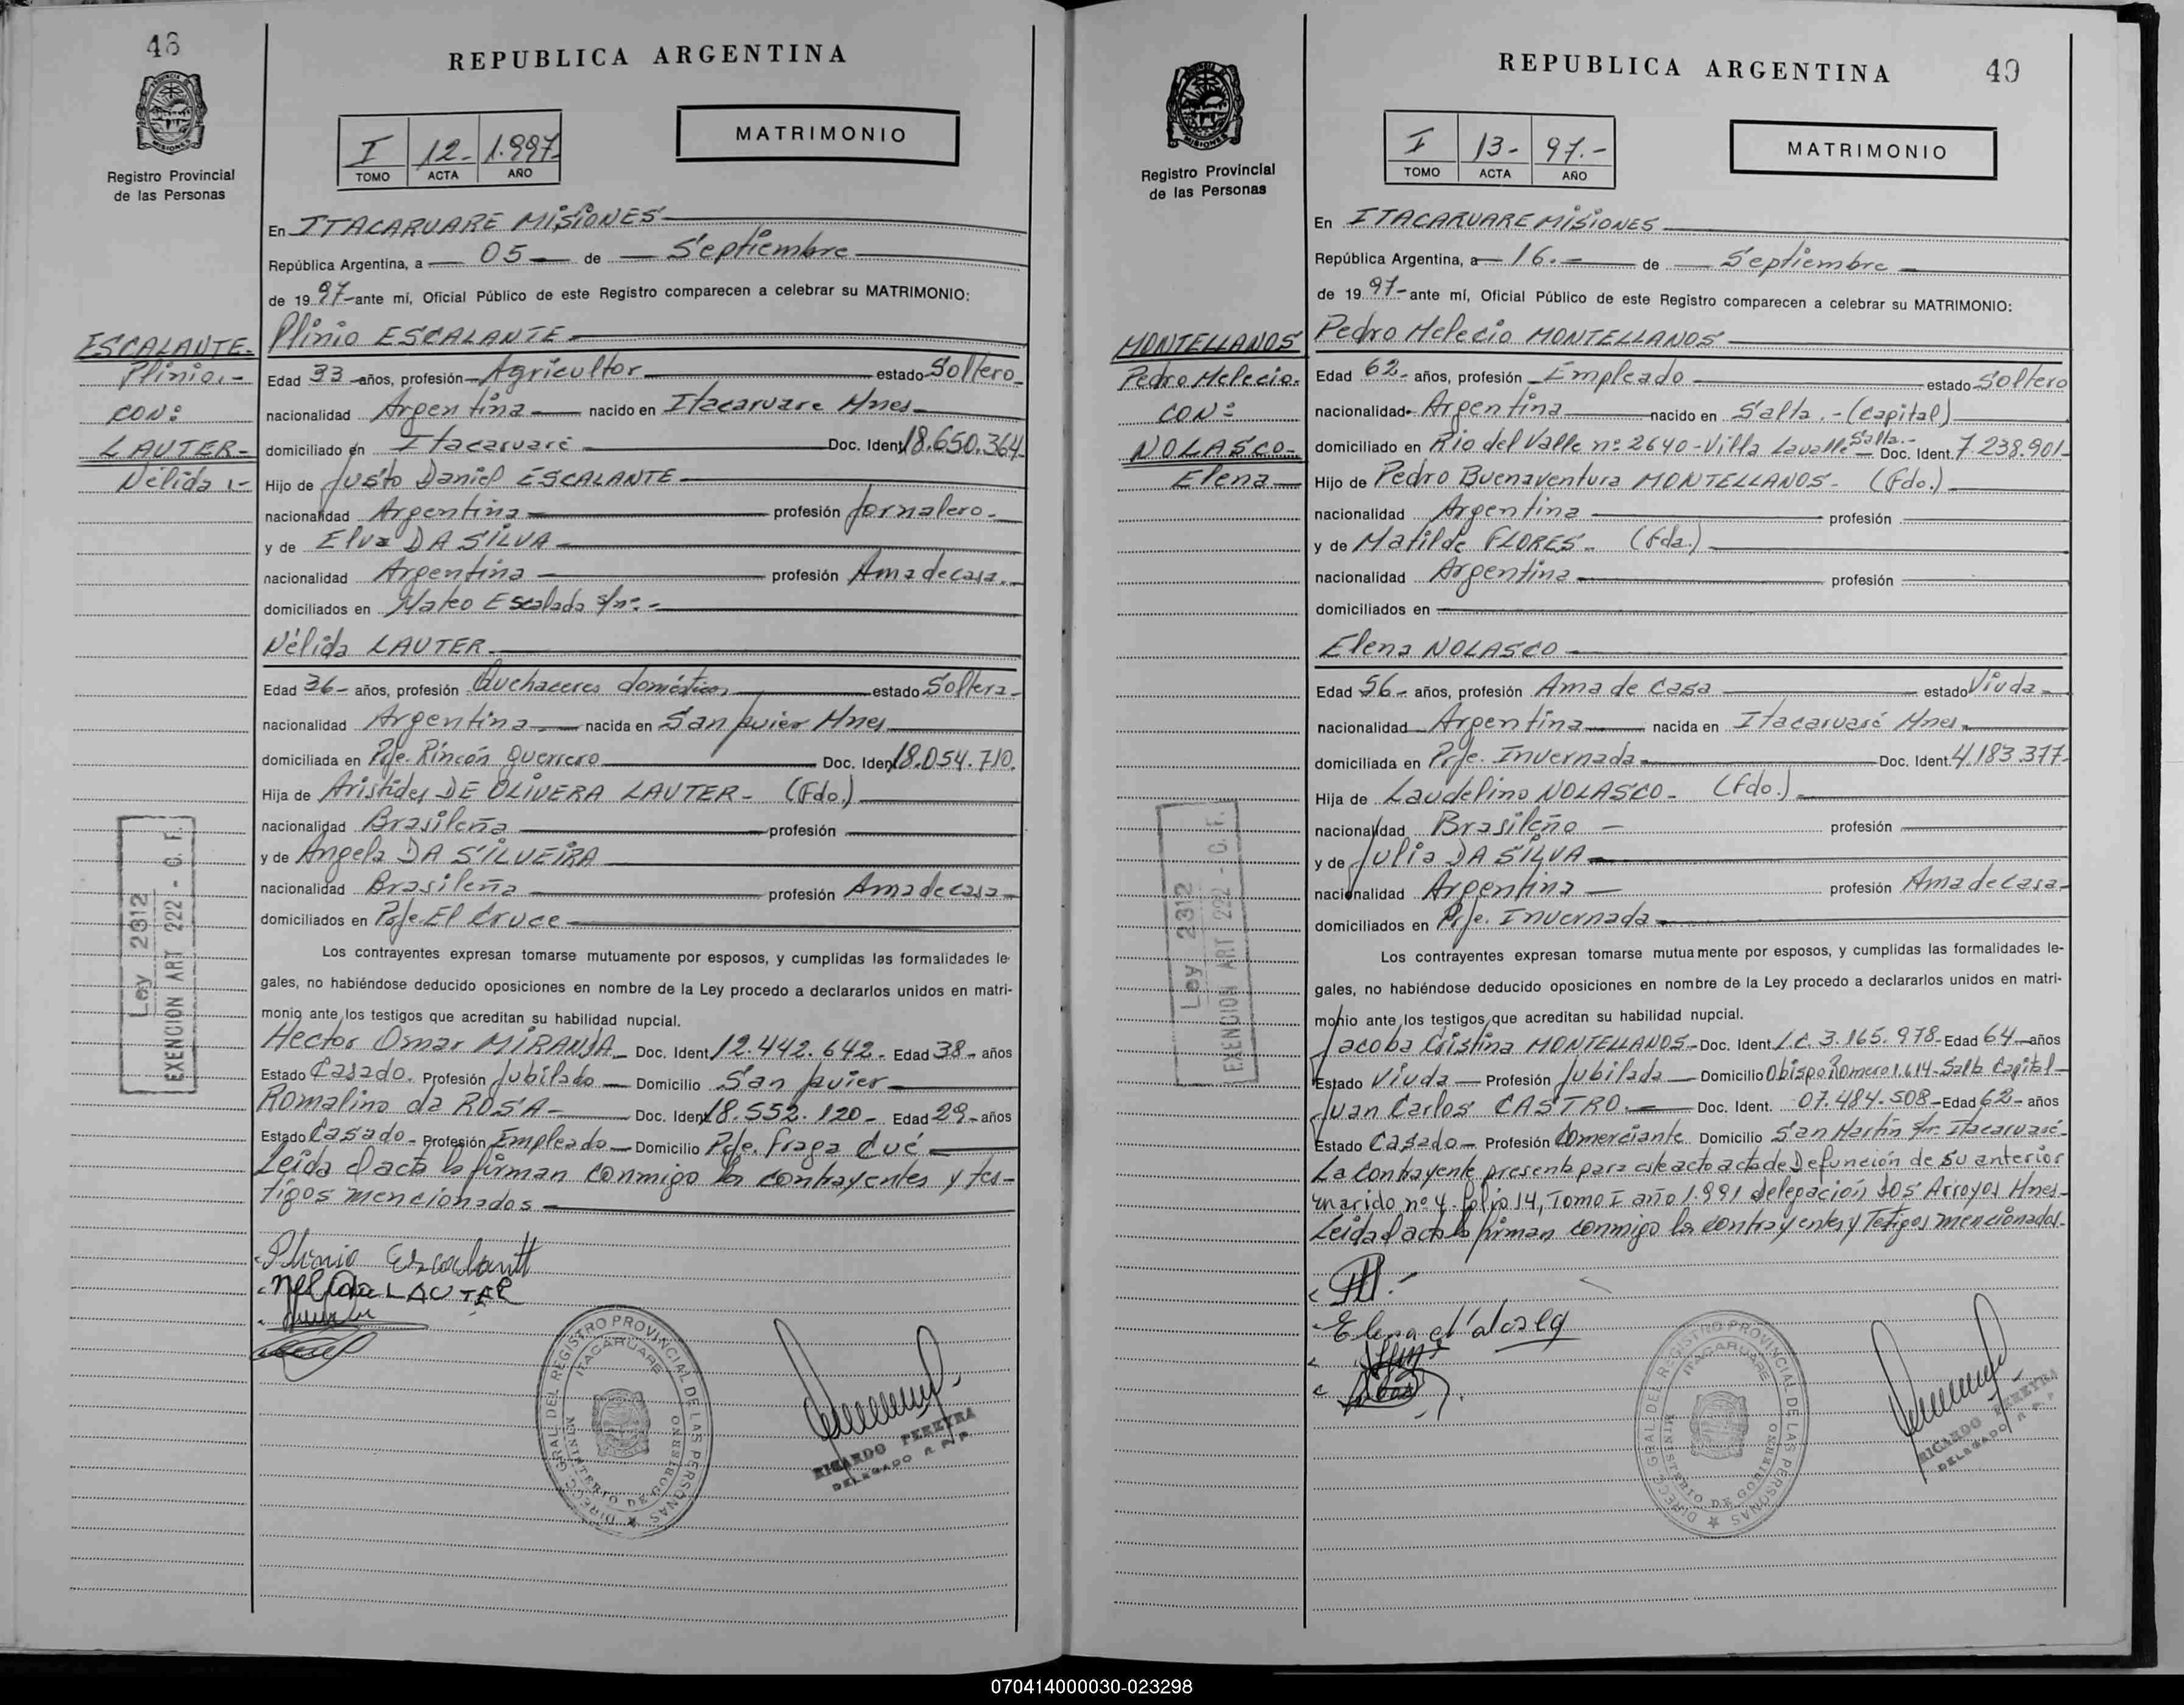 48
REPUBLICA ARGENTINA
MISIONES
Registro Provincial
de las Personas
I 12- 1.997-
TOMO ACTA AÑO
MATRIMONIO
En ITACARUARE MISIONES
República Argentina, a 05 de Septiembre
de 1997-ante mí, Oficial Público de este Registro comparecen a celebrar su MATRIMONIO:
ESCALANTE.
Plinio.-
CON:
LAUTER-
Nélida.-
Plinio ESCALANTE
Edad 33 años, profesión Agricultor estado Soltero
nacionalidad Argentina nacido en Itacaruare Mnes
domiciliado en Itacaruaré Doc. Ident. 18.650.364
Hijo de Justo Daniel ESCALANTE
nacionalidad Argentina profesión Jornalero
y de Elva DA SILVA
nacionalidad Argentina profesión Ama de casa
domiciliados en Mateo Escalada s/nº
Nélida LAUTER
Edad 36 años, profesión Quehaceres domésticos estado Soltera
nacionalidad Argentina nacida en San Javier Mnes
domiciliada en Pje. Rincón Guerrero Doc. Ident. 18.054.710
Hija de Aristides DE OLIVERA LAUTER - (Fdo.)
nacionalidad Brasileña profesión
y de Angela DA SILVEIRA
nacionalidad Brasileña profesión Ama de casa
domiciliados en Pje. El Cruce
Ley 2312
EXENCION ART 222 - C. F.
Los contrayentes expresan tomarse mutuamente por esposos, y cumplidas las formalidades le-
gales, no habiéndose deducido oposiciones en nombre de la Ley procedo a declararlos unidos en matri-
monio ante los testigos que acreditan su habilidad nupcial.
Hector Omar MIRANDA Doc. Ident. 12.442.642 - Edad 38 años
Estado Casado. Profesión Jubilado Domicilio San Javier
Romalino da ROSA Doc. Ident. 18.552.120 - Edad 29 años
Estado Casado - Profesión Empleado Domicilio Pje. Fraga Cué
Leida el acta la firman conmigo los contrayentes y tes-
tigos mencionados
Plinio Escalante
Nelida LAUTER
DIRECC. GRAL DEL REGISTRO PROVINCIAL DE LAS PERSONAS
ITACARUARE
MINISTERIO DE GOBIERNO
RICARDO PEREYRA
DELEGADO R. P. P.
REPUBLICA ARGENTINA
49
MISIONES
Registro Provincial
de las Personas
I 13- 97.-
TOMO ACTA AÑO
MATRIMONIO
En ITACARUARE MISIONES
República Argentina, a 16.- de Septiembre
de 1997- ante mí, Oficial Público de este Registro comparecen a celebrar su MATRIMONIO:
MONTELLANOS
Pedro Melecio.
CON:
NOLASCO-
Elena
Pedro Melecio MONTELLANOS
Edad 62- años, profesión Empleado estado Soltero
nacionalidad Argentina nacido en Salta.-(Capital)
domiciliado en Rio del Valle nº 2640-Villa Lavalle Salta.- Doc. Ident. 7.238.901
Hijo de Pedro Buenaventura MONTELLANOS- (Fdo.)
nacionalidad Argentina profesión
y de Matilde FLORES- (Fda.)
nacionalidad Argentina profesión
domiciliados en
Elena NOLASCO
Edad 56- años, profesión Ama de Casa estado Viuda
nacionalidad Argentina nacida en Itacaruaré Mnes
domiciliada en Pje. Invernada Doc. Ident. 4.183.377
Hija de Laudelino NOLASCO- (Fdo.)
nacionalidad Brasileño profesión
y de Julia DA SILVA
nacionalidad Argentina profesión Ama de casa
domiciliados en Pje. Invernada
Ley 2312
EXENCION ART 222 - C. F.
Los contrayentes expresan tomarse mutuamente por esposos, y cumplidas las formalidades le-
gales, no habiéndose deducido oposiciones en nombre de la Ley procedo a declararlos unidos en matri-
monio ante los testigos que acreditan su habilidad nupcial.
Jacoba Cristina MONTELLANOS- Doc. Ident. L.C. 3.165.978- Edad 64 años
Estado Viuda Profesión Jubilada Domicilio Obispo Romero 1.614-Salta Capital
Juan Carlos CASTRO.- Doc. Ident. 07.484.508- Edad 62- años
Estado Casado Profesión Comerciante Domicilio San Martín s/n. Itacaruaré-
La contrayente presenta para este acto acta de Defunción de su anterior
marido nº 4 folio 14, Tomo I año 1.991 delegación Dos Arroyos Mnes-
Leida el acta la firman conmigo los contrayentes y Testigos mencionados-
DIRECC. GRAL DEL REGISTRO PROVINCIAL DE LAS PERSONAS
ITACARUARE
MINISTERIO DE GOBIERNO
RICARDO PEREYRA
DELEGADO R. P. P.
070414000030-023298